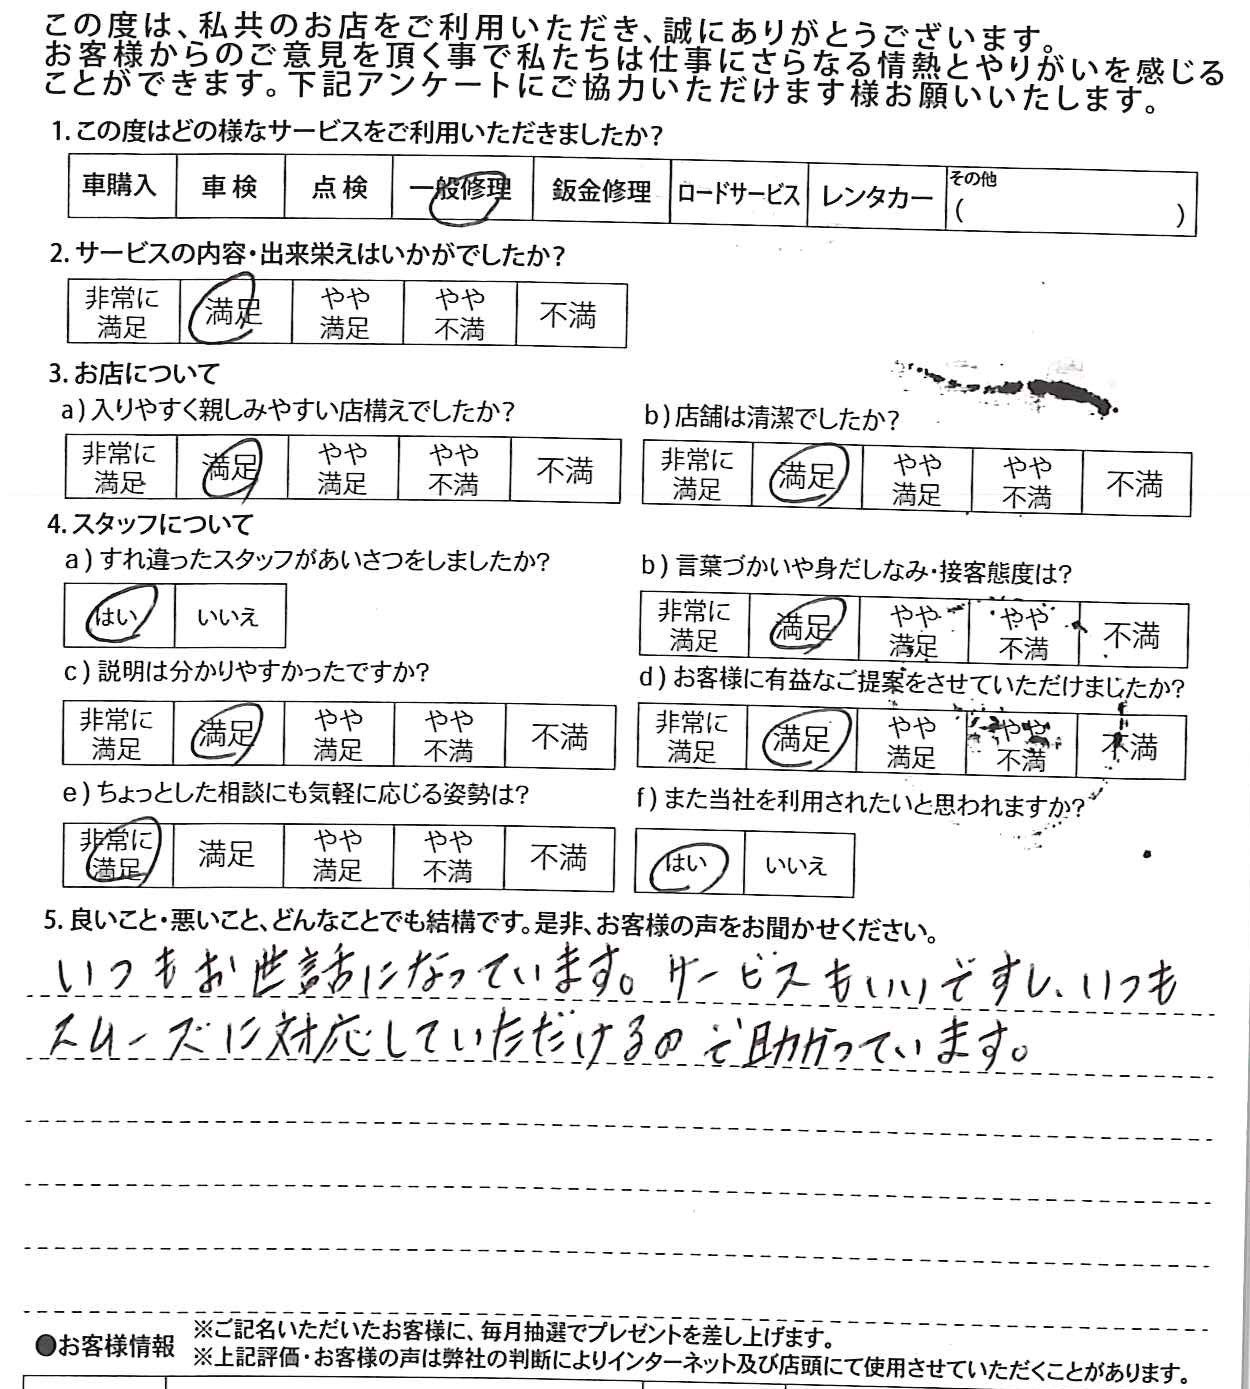 この度は、私共のお店をご利用いただき、誠にありがとうございます。
お客様からのご意見を頂く事で私たちは仕事にさらなる情熱とやりがいを感じる
ことができます。下記アンケートにご協力いただけます様お願いいたします。
1.この度はどの様なサービスをご利用いただきましたか?
車購入 車検 点検 一般修理 鈑金修理 ロードサービス レンタカー その他
( )
2.サービスの内容・出来栄えはいかがでしたか?
非常に満足 満足 やや満足 やや不満 不満
3.お店について
a)入りやすく親しみやすい店構えでしたか?
非常に満足 満足 やや満足 やや不満 不満
b)店舗は清潔でしたか?
非常に満足 満足 やや満足 やや不満 不満
4.スタッフについて
a)すれ違ったスタッフがあいさつをしましたか?
はい いいえ
b)言葉づかいや身だしなみ・接客態度は?
非常に満足 満足 やや満足 やや不満 不満
c)説明は分かりやすかったですか?
非常に満足 満足 やや満足 やや不満 不満
d)お客様に有益なご提案をさせていただけましたか?
非常に満足 満足 やや満足 やや不満 不満
e)ちょっとした相談にも気軽に応じる姿勢は?
非常に満足 満足 やや満足 やや不満 不満
f)また当社を利用されたいと思われますか?
はい いいえ
5.良いこと・悪いこと、どんなことでも結構です。是非、お客様の声をお聞かせください。
いつもお世話になっています。サービスもいいですし、いつも
スムーズに対応していただけるので助かっています。
●お客様情報
※ご記名いただいたお客様に、毎月抽選でプレゼントを差し上げます。
※上記評価・お客様の声は弊社の判断によりインターネット及び店頭にて使用させていただくことがあります。